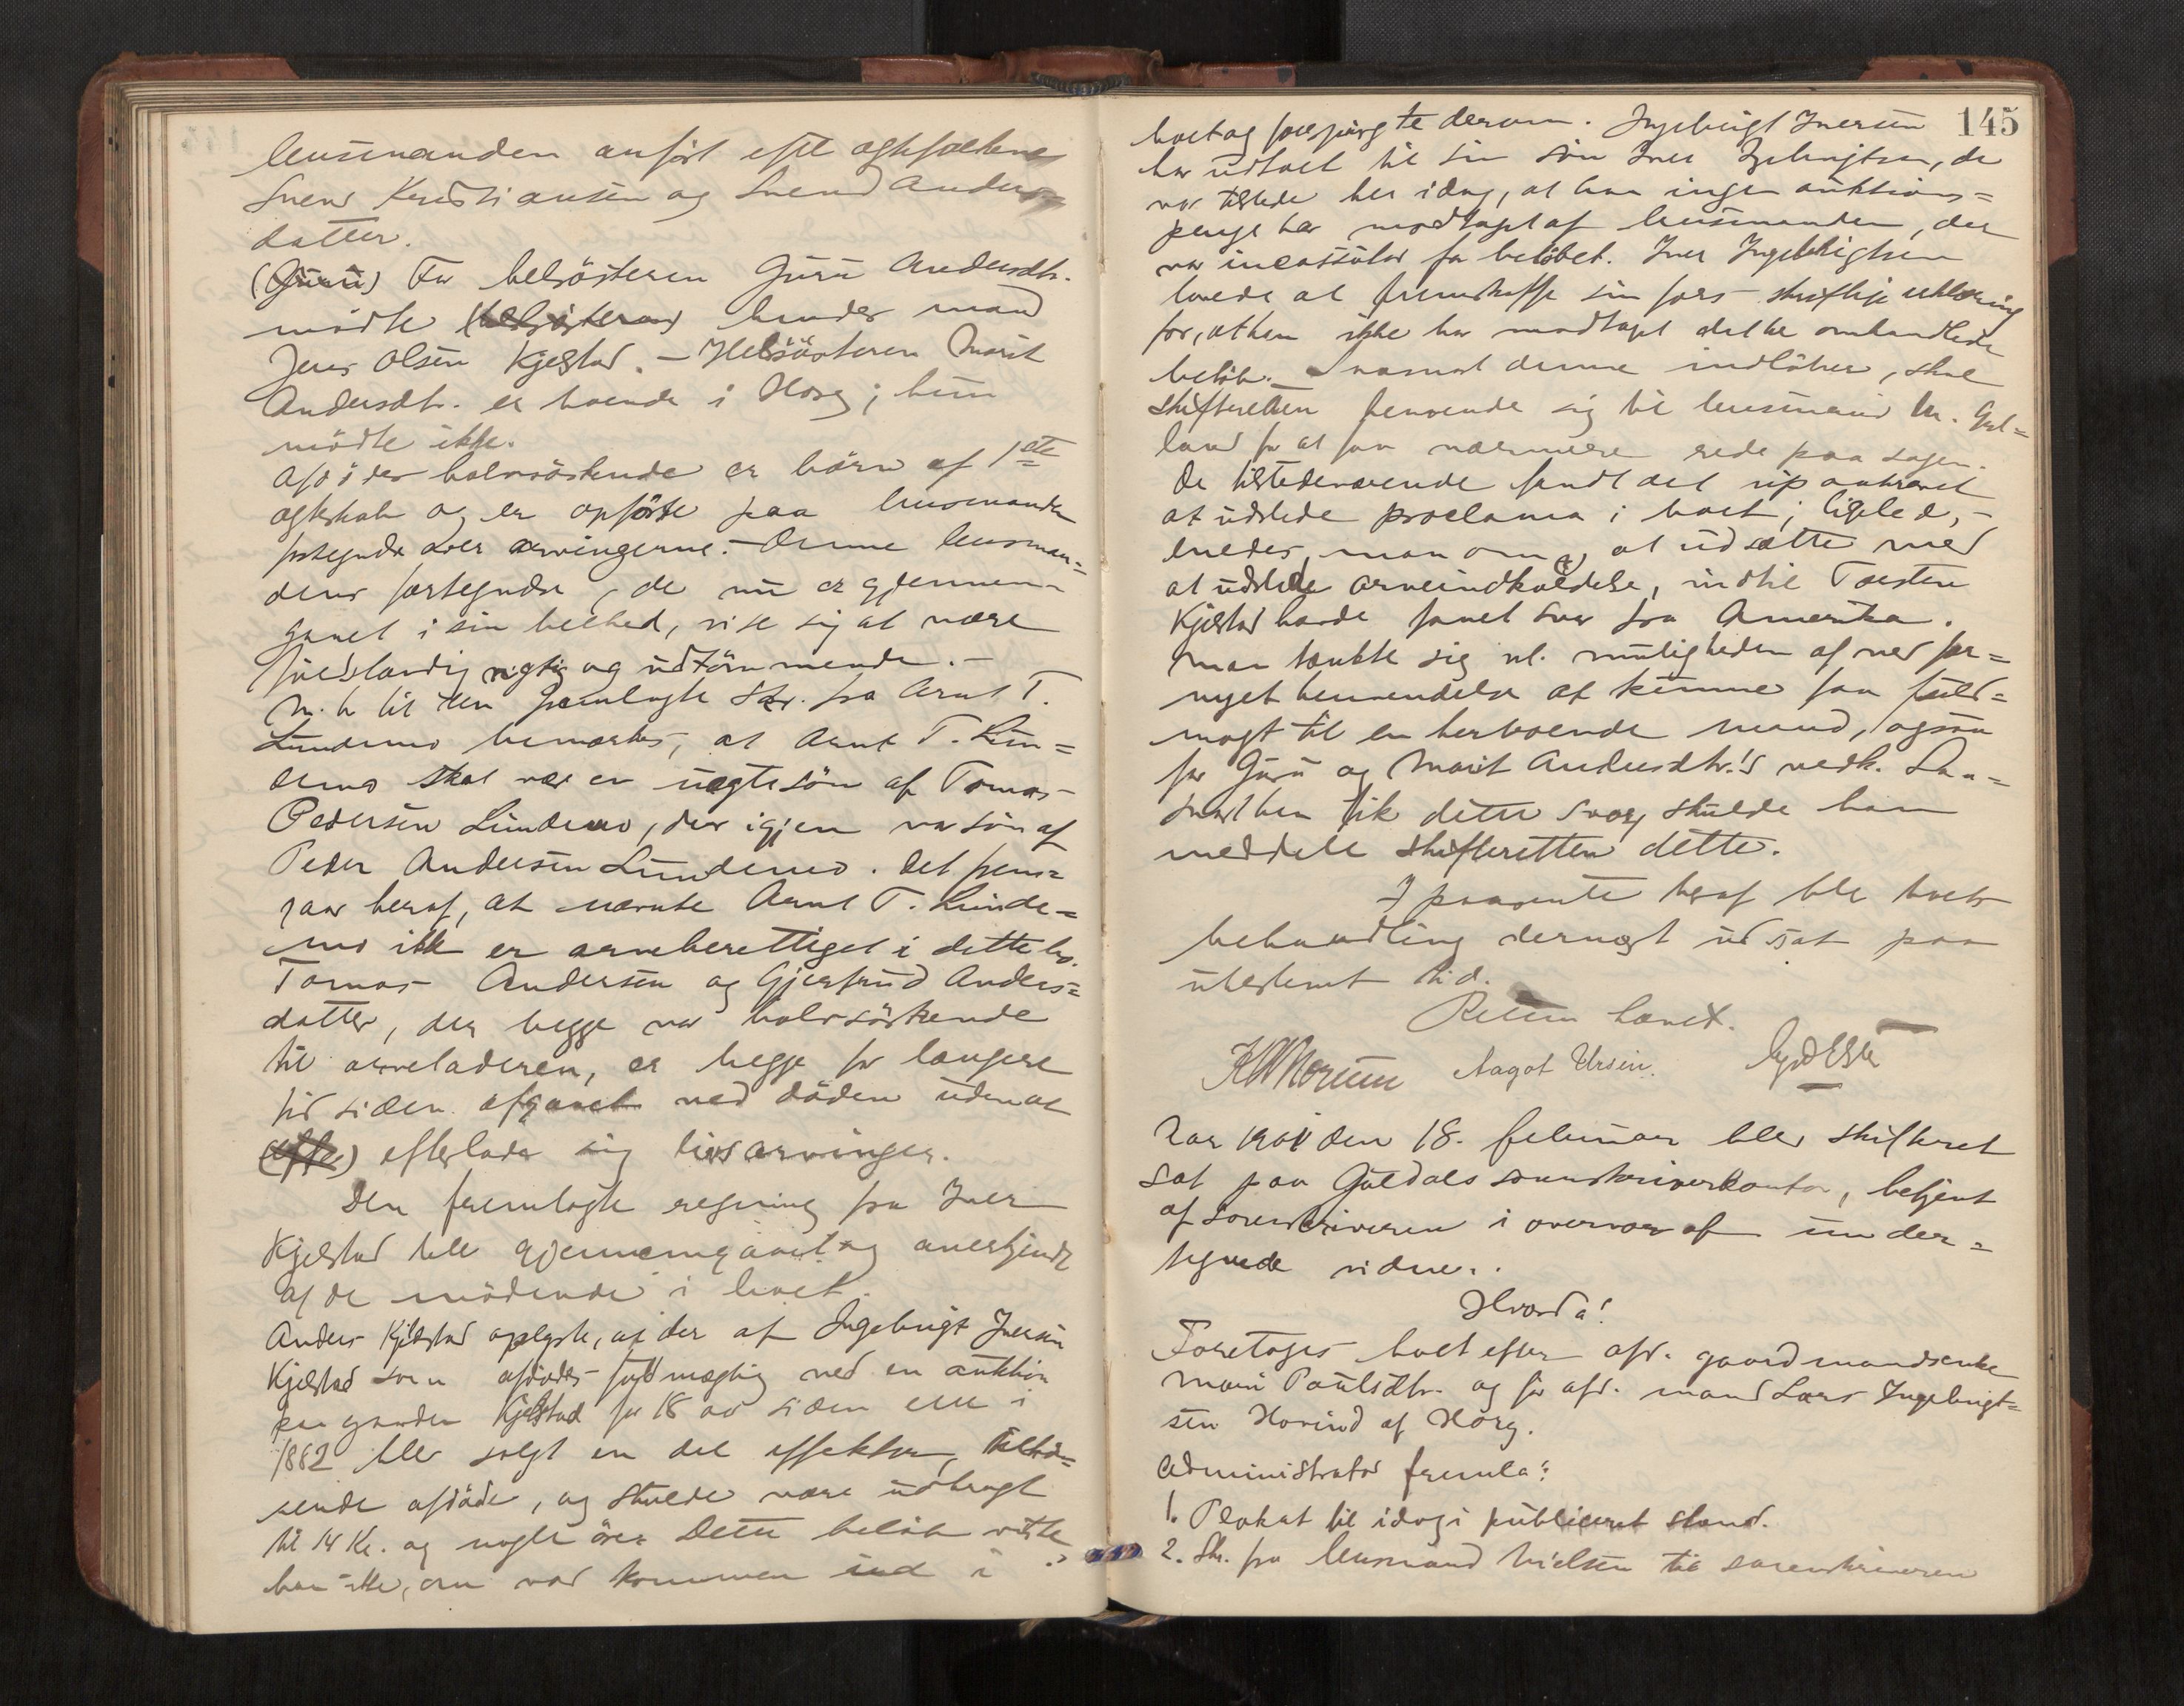 lensmanden anført efte ægtefællene
Svend Kristiansen og Svend Anders=
datter.
(Guru) For helsösteren Guru Andersdtr.
mödte (helsösteren) hendes mand
Jens Olsen Kjelstad. – Helsösteren Marit
Andersdtr. er boende i Horg; hun
mödte ikke.
Afdödes halvsöskende er börn af 1ste
ægteskab og er opförte paa lensmandens
fortegnelse over arvingerne. – Denne lensman=
dens fortegnelse, de nu er gjennem-
gaaet i sin helhed, viste sig at være
fuldstændig rigtig og udtömmende. –
M. h. til den fremlagte Skr. fra Arnt T.
Lundemo bemærkes, at Arnt T. Lun=
demo skal være en uægte sön af Tomas
Pedersen Lundemo, der igjen var sön af
Peder Andersen Lundemo. Det frem=
gaar heraf, at nævnte Arnt T. Lunde=
mo ikke er arveberettiget i dette bo.
Tomas Andersen og Gjertrud Anders=
datter, der begge var halvsöskende
til arveladeren, er begge for længere
tid siden afgaaet ved döden uden at
(efte) efterlade sig livsarvinger.
Den fremlagte regning fra Iver
Kjelstad blev gjennemgaaet og anerkjendt
af de mödende i boet.
Anders Kjelstad oplyste, at der af Ingebrigt Iversen
Kjelstad som afdödes fuldmægtig ved en auktion
paa gaarden Kjelstad for 18 aar siden eller i
1882 blev solgt en del effekter, tilhö=
rende afdöde, og skulde være udbragt
til 14 Kr. og nogle öre. Dette belöb vidste
han ikke, om var kommen ind i
145
boet og forespurgte derom. Ingebrigt Iversen
har udtalt til sin sön Iver Ingebrigtsen, der
var tilstede her idag, at han ingen auktions=
penge har modtaget af lensmanden, der
var incassator for belöbet. Iver Ingebrigtsen
lovede at fremskaffe sin fars skriftlige erklæring
for, at han ikke har modtaget dette omhandlede
belöb. Saasnart denne indlöber, skal
skifteretten henvende sig til lensmand M. Gel=
land for at faa nærmere rede paa sagen.
De tilstedeværende fandt det upaakrævet
at udstede proclama i boet; ligeled,-
enedes man om at udsætte med
at udstede arveindkaldelse, indtil Torsten
Kjelstad havde faaet svar fra Amerika.
Man tænkte sig nl. muligheden af ved for=
nyet henvendelse at kunne faa fuld=
magt til en herboende mand, ogsaa
for Guru og Marit Andersdtr.'s vedk. Saa=
snart han fik dette svar, skulde han
meddele skifteretten dette.
I paavente heraf blev boets
behandling dernæst udsat paa
ubestemt tid.
Retten hævet.
Aagot Ursin.
Aar 1901 den 18. februar blev skifteret
sat paa Guldals sorenskriverkontor, betjent
af sorenskriveren i overvær af under=
tegnede vidner.
Hvorda:
Foretages boet efter afd. gaardmandsenke
Mari Paulsdtr. og för afd. mand Lars Ingebrigt=
sen Hovind af Horg.
Administrator fremla:
1. Plakat til idag i publiceret stand.
2. Skr. fra lensmand Nielsen til sorenskriveren